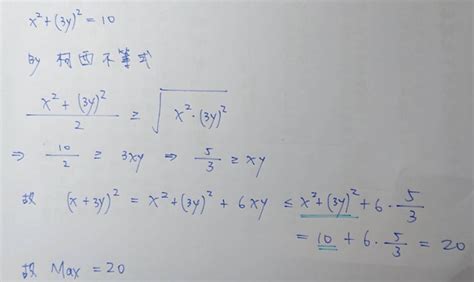 x² + (3y)² = 10
by 柯西不等式
(x² + (3y)²)/2 ≥ √(x²·(3y)²)
⇒ 10/2 ≥ 3xy ⇒ 5/3 ≥ xy
故 (x+3y)² = x² + (3y)² + 6xy ≤ x² + (3y)² + 6·5/3
= 10 + 6·5/3 = 20
故 Max = 20